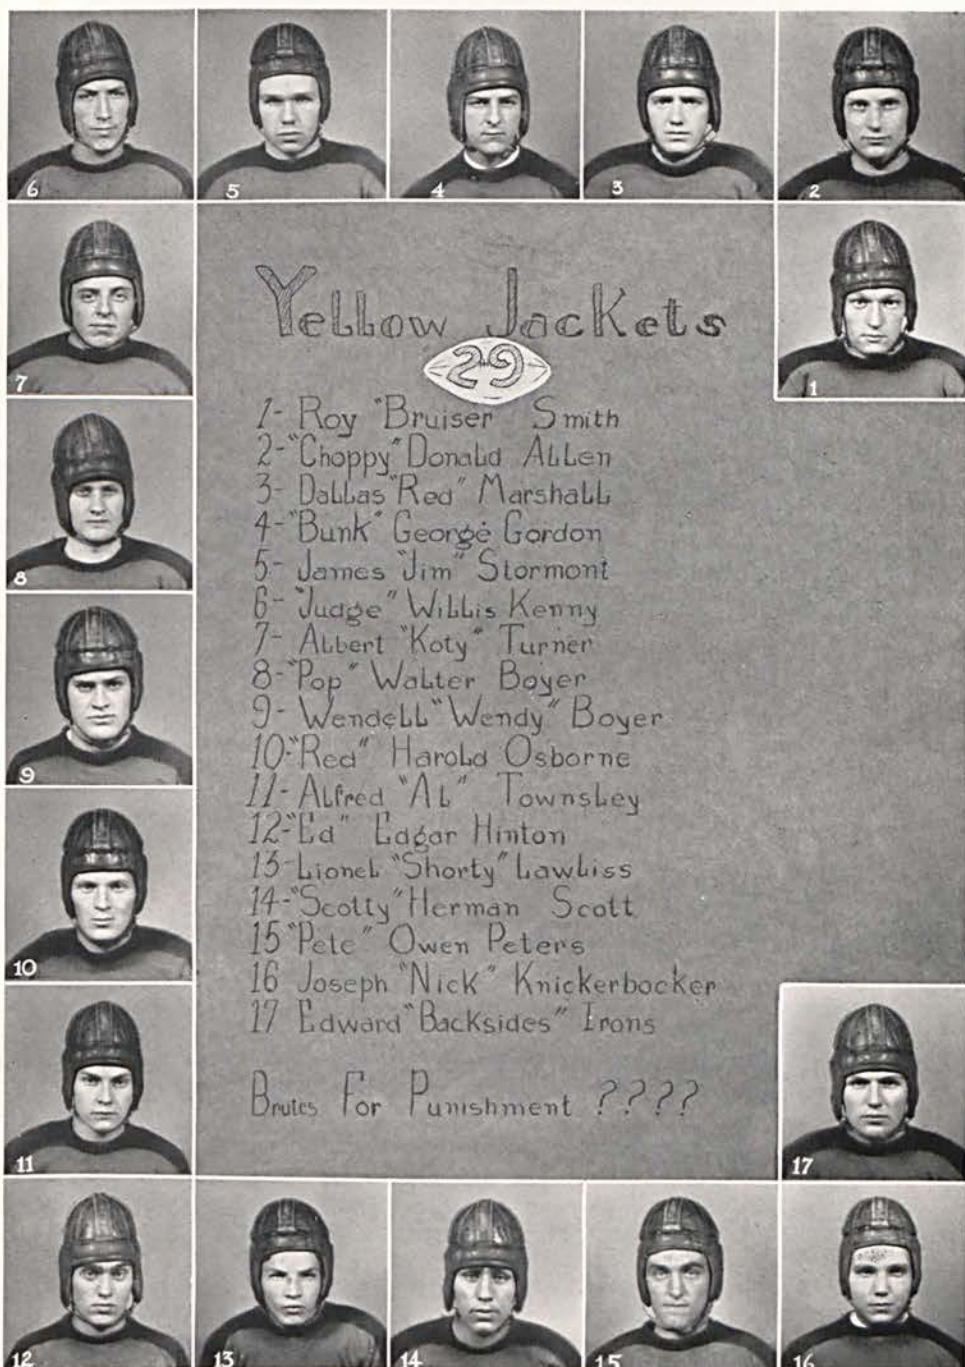 6
5
4
3
2
7
1
8
9
10
11
17
12
13
14
15
16
Yellow Jackets
29
1- Roy "Bruiser Smith
2- "Choppy" Donald Allen
3- Dallas "Red" Marshall
4- "Bunk" George Gordon
5- James "Jim" Stormont
6- "Judge" Willis Kenny
7- Albert "Koty" Turner
8- "Pop" Walter Boyer
9- Wendell "Wendy" Boyer
10- "Red" Harold Osborne
11- Alfred "Al" Townsley
12- "Ed" Edgar Hinton
13- Lionel "Shorty" Lawliss
14- "Scotty" Herman Scott
15 "Pete" Owen Peters
16 Joseph "Nick" Knickerbocker
17 Edward "Backsides" Irons
Brutes For Punishment ????